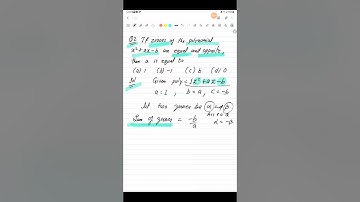 Q2 If zeroes of the polynomial
x²+ax-b are equal and opposite,
then a is equal to
(a) 1 (b) -1 (c) b (d) 0
Sol Given poly = 1x²+ax-b
a=1, b=a, c=-b
let two zeroes be α and β
α = -β
Sum of zeroes = -b/a